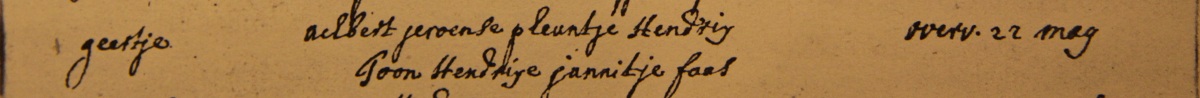 geertje aelbert jeroense pleuntje Hendrix overv. 22 mag
Toon Hendrixe jannitje faas